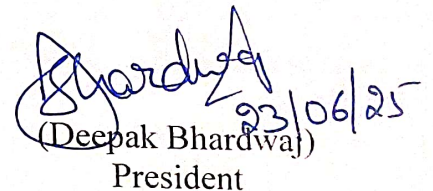 Bhardwaj
23/06/25
(Deepak Bhardwaj)
President